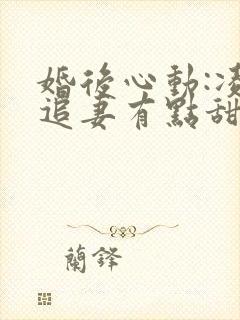 婚後心動:凌
追妻有點甜
蘭鋒